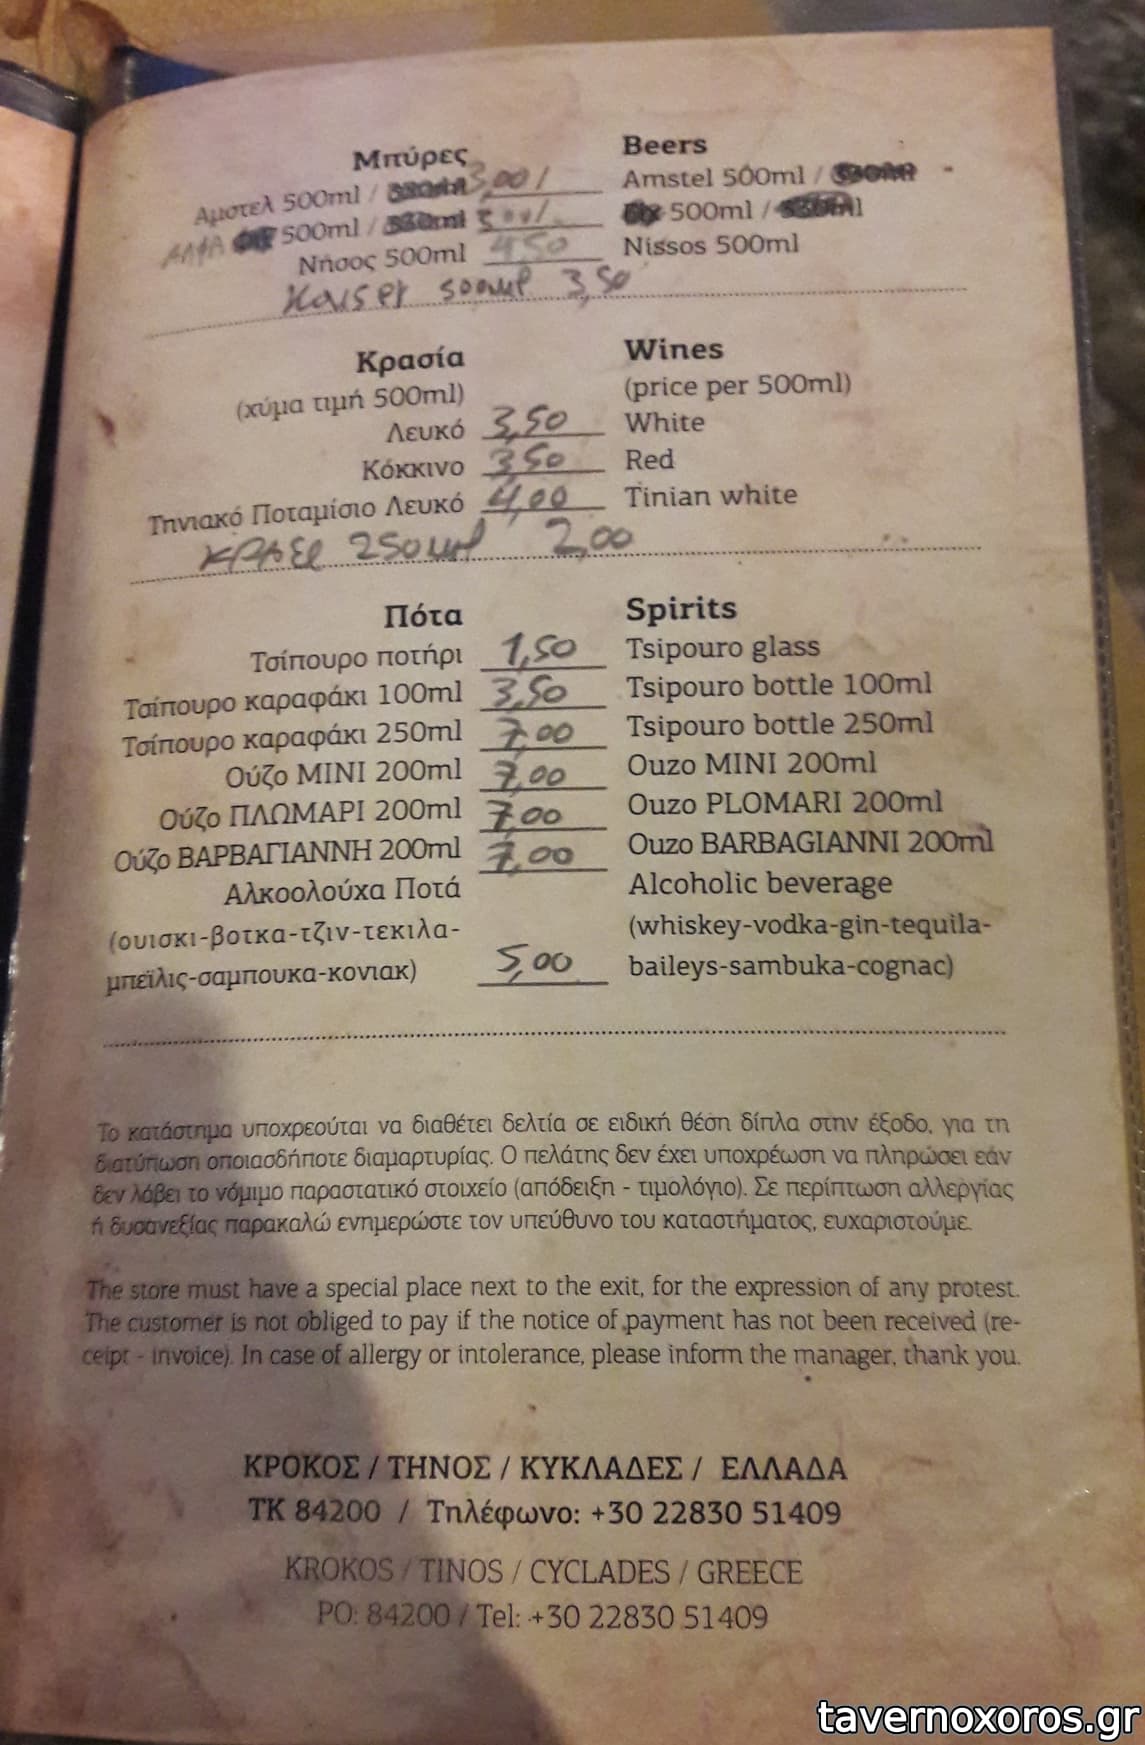 Μπύρες Beers
Αμστελ 500ml / 3,00/ Amstel 500ml /
ΑΛΦΑ 500ml / 500ml /
Νήσος 500ml 4,50 Nissos 500ml
Kaiser 500ml 3,50
Κρασία Wines
(χύμα τιμή 500ml) (price per 500ml)
Λευκό 3,50 White
Κόκκινο 3,50 Red
Τηνιακό Ποταμίσιο Λευκό 4,00 Tinian white
250ml 2,00
Πότα Spirits
Τσίπουρο ποτήρι 1,50 Tsipouro glass
Τσίπουρο καραφάκι 100ml 3,50 Tsipouro bottle 100ml
Τσίπουρο καραφάκι 250ml 7,00 Tsipouro bottle 250ml
Ούζο ΜΙΝΙ 200ml 7,00 Ouzo MINI 200ml
Ούζο ΠΛΩΜΑΡΙ 200ml 7,00 Ouzo PLOMARI 200ml
Ούζο ΒΑΡΒΑΓΙΑΝΝΗ 200ml 7,00 Ouzo BARBAGIANNI 200ml
Αλκοολούχα Ποτά Alcoholic beverage
(ουισκι-βοτκα-τζιν-τεκιλα- (whiskey-vodka-gin-tequila-
μπεϊλις-σαμπουκα-κονιακ) 5,00 baileys-sambuka-cognac)
Το κατάστημα υποχρεούται να διαθέτει δελτία σε ειδική θέση δίπλα στην έξοδο, για τη
διατύπωση οποιασδήποτε διαμαρτυρίας. Ο πελάτης δεν έχει υποχρέωση να πληρώσει εάν
δεν λάβει το νόμιμο παραστατικό στοιχείο (απόδειξη - τιμολόγιο). Σε περίπτωση αλλεργίας
ή δυσανεξίας παρακαλώ ενημερώστε τον υπεύθυνο του καταστήματος, ευχαριστούμε.
The store must have a special place next to the exit, for the expression of any protest.
The customer is not obliged to pay if the notice of payment has not been received (re-
ceipt - invoice). In case of allergy or intolerance, please inform the manager, thank you.
ΚΡΟΚΟΣ / ΤΗΝΟΣ / ΚΥΚΛΑΔΕΣ / ΕΛΛΑΔΑ
ΤΚ 84200 / Τηλέφωνο: +30 22830 51409
KROKOS / TINOS / CYCLADES / GREECE
PO: 84200 / Tel: +30 22830 51409
tavernoxoros.gr